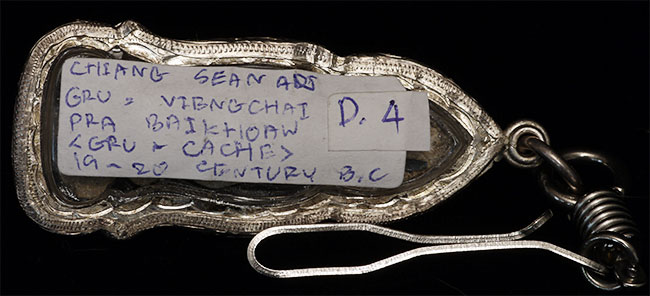 CHIANG SEAN ART
GRU = VIENGCHAI
PRA BAIKHOAW
<GRU = CACHE>
19-20 CENTURY B.C
D.4